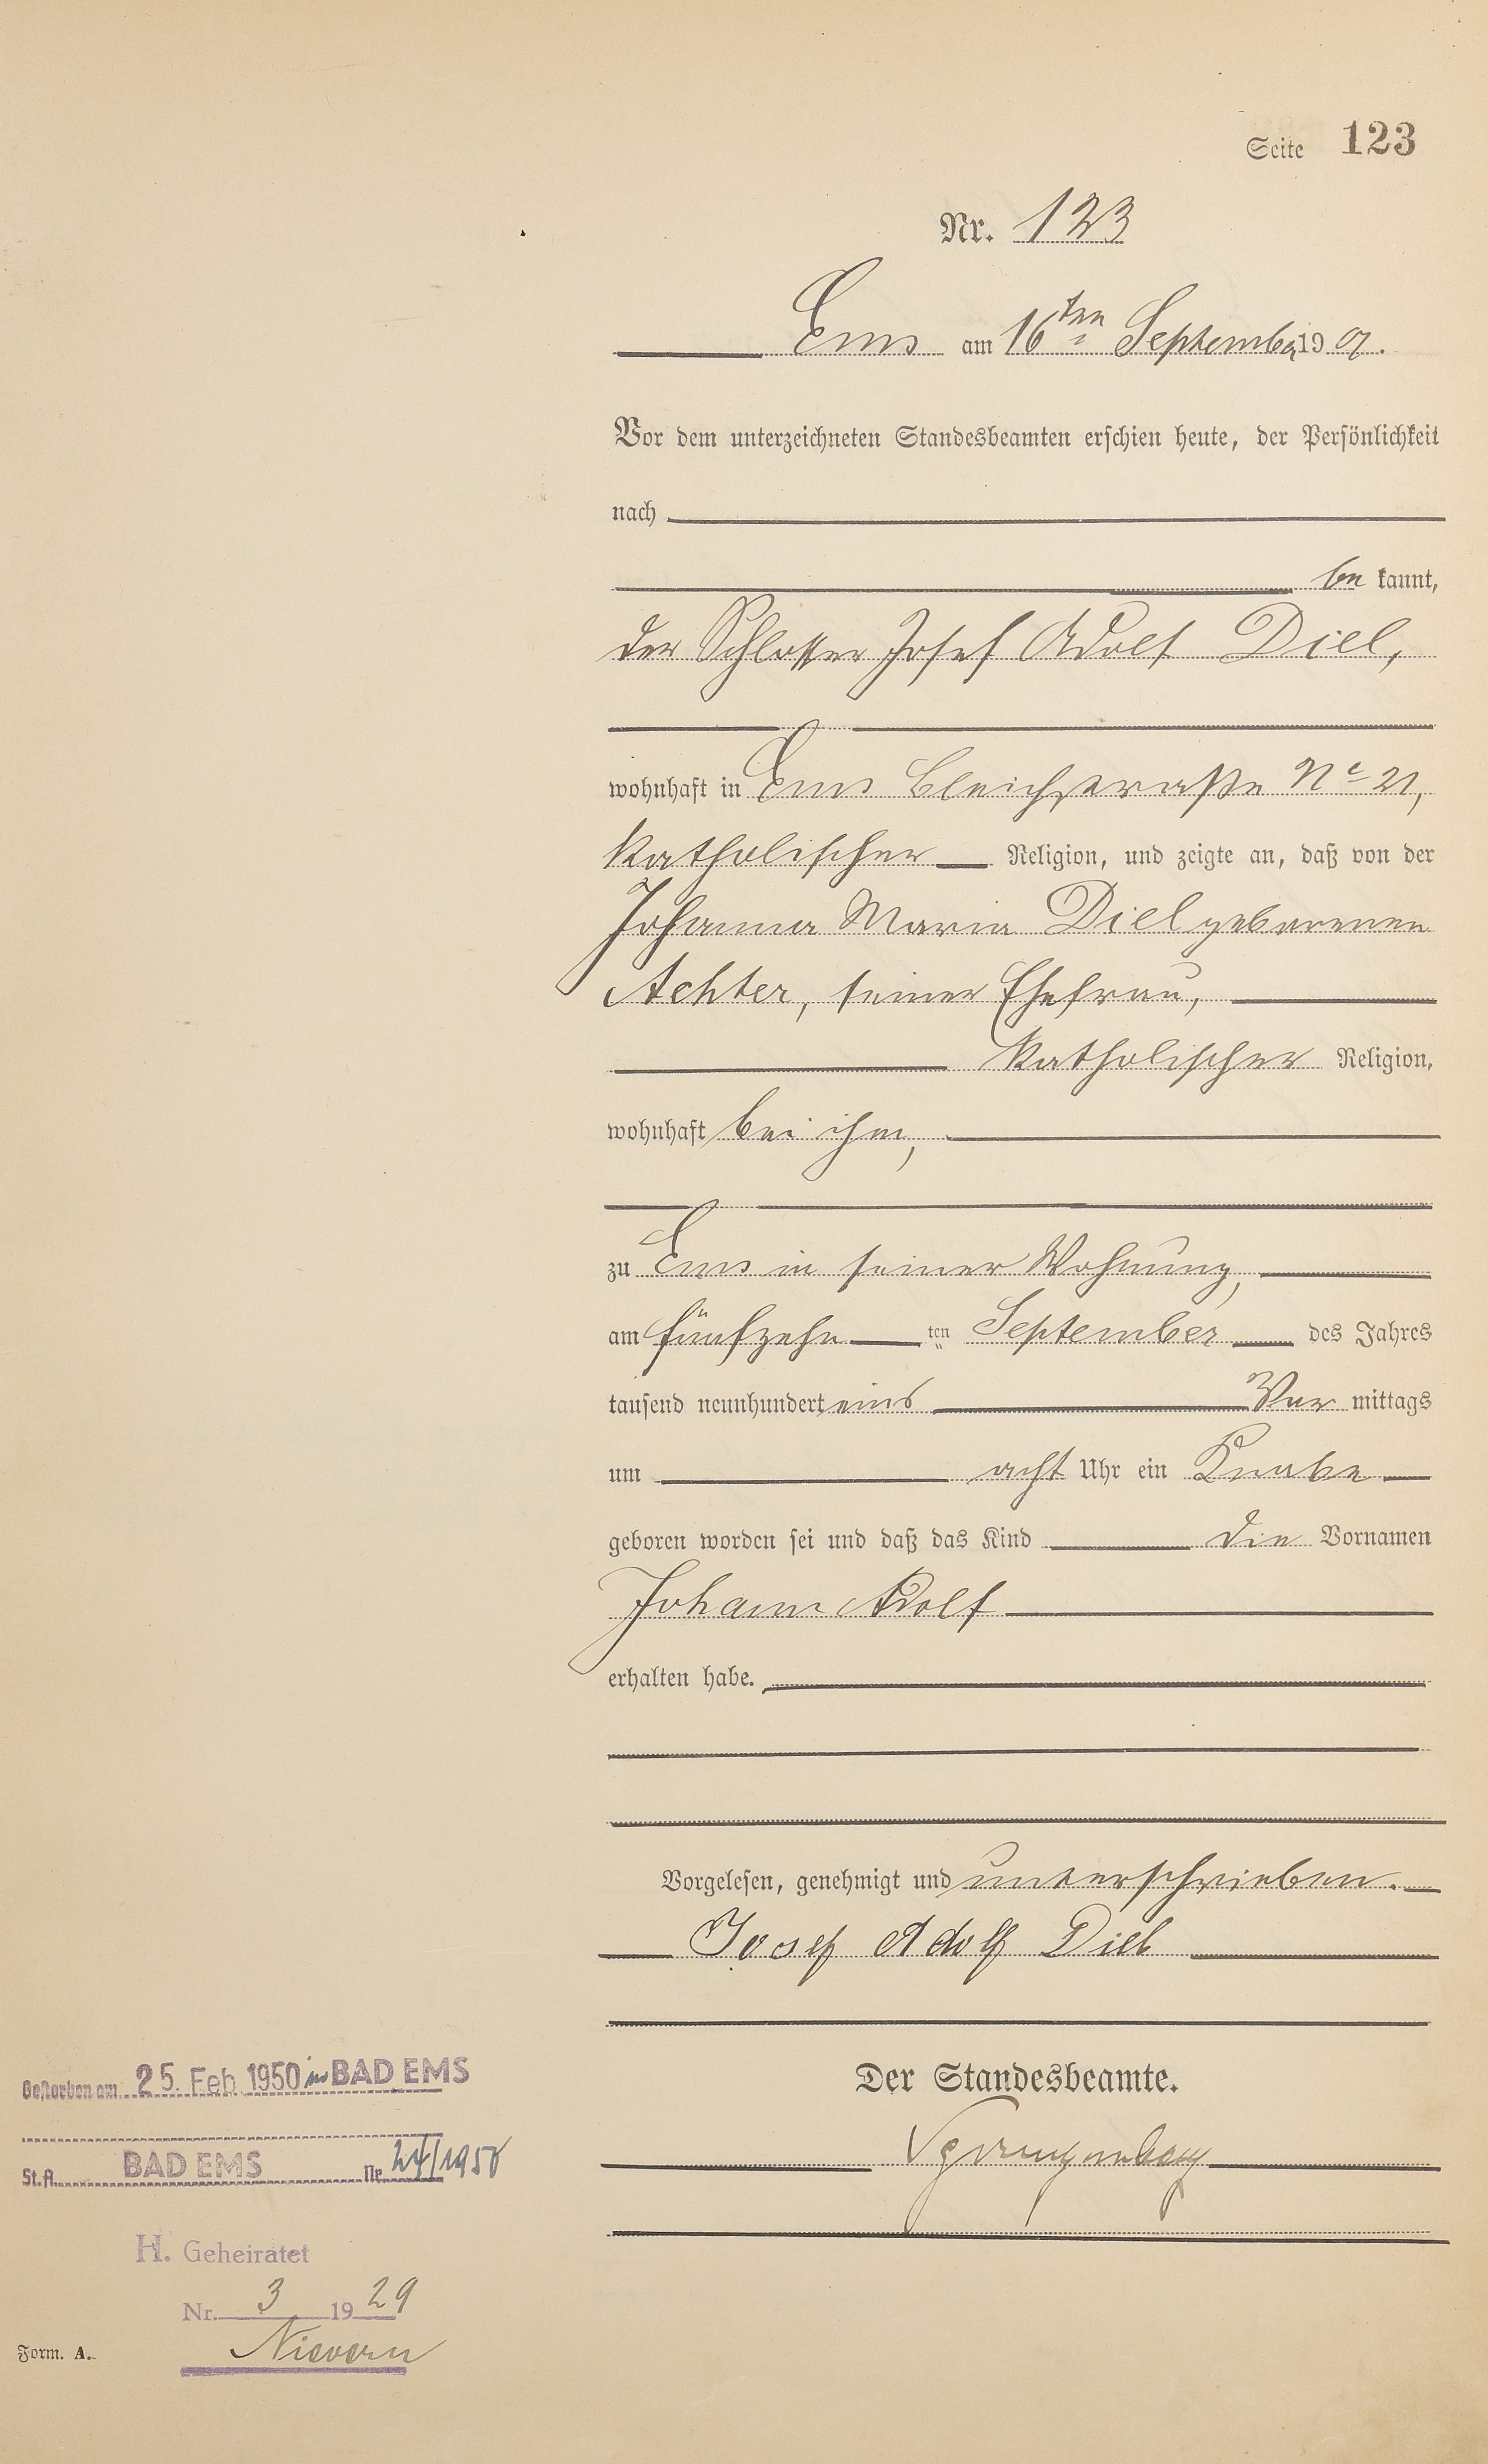 Seite 123
Nr. 123
Ems am 16ten September 1901.
Vor dem unterzeichneten Standesbeamten erschien heute, der Persönlichkeit
nach
be kannt,
der Schlosser Josef Adolf Diel,
wohnhaft in Ems Bleichstraße No 21,
katholischer Religion, und zeigte an, daß von der
Johanna Maria Diel geborenen
Achter, seiner Ehefrau,
katholischer Religion,
wohnhaft bei ihm,
zu Ems in seiner Wohnung,
am fünfzehn ten September des Jahres
tausend neunhundert eins Vor mittags
um acht Uhr ein Knabe
geboren worden sei und daß das Kind die Vornamen
Johann Adolf
erhalten habe.
Vorgelesen, genehmigt und unterschrieben.
Josef Adolf Diel
Der Standesbeamte.
Gestorben am 25. Feb. 1950 in BAD EMS
St.A. BAD EMS Nr. 24/1950
H. Geheiratet
Nr. 3 1929
Nievern
Form. A.